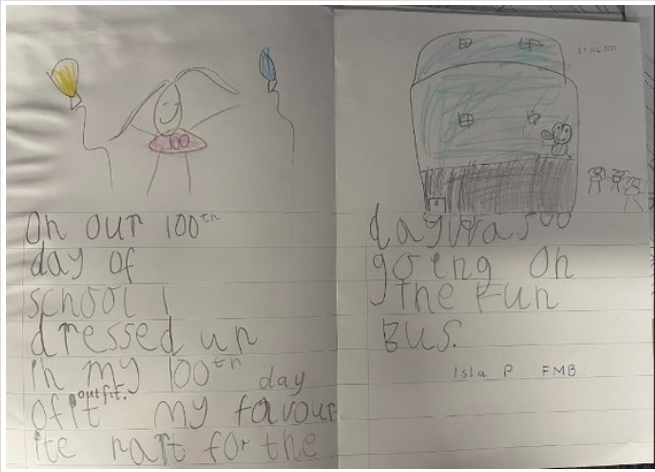 100
On our 100th
day of
school I
dressed up
in my 100th day
outfit.
ofit my favour
ite part for the
day was
going on
the Fun
Bus.
Isla P FMB